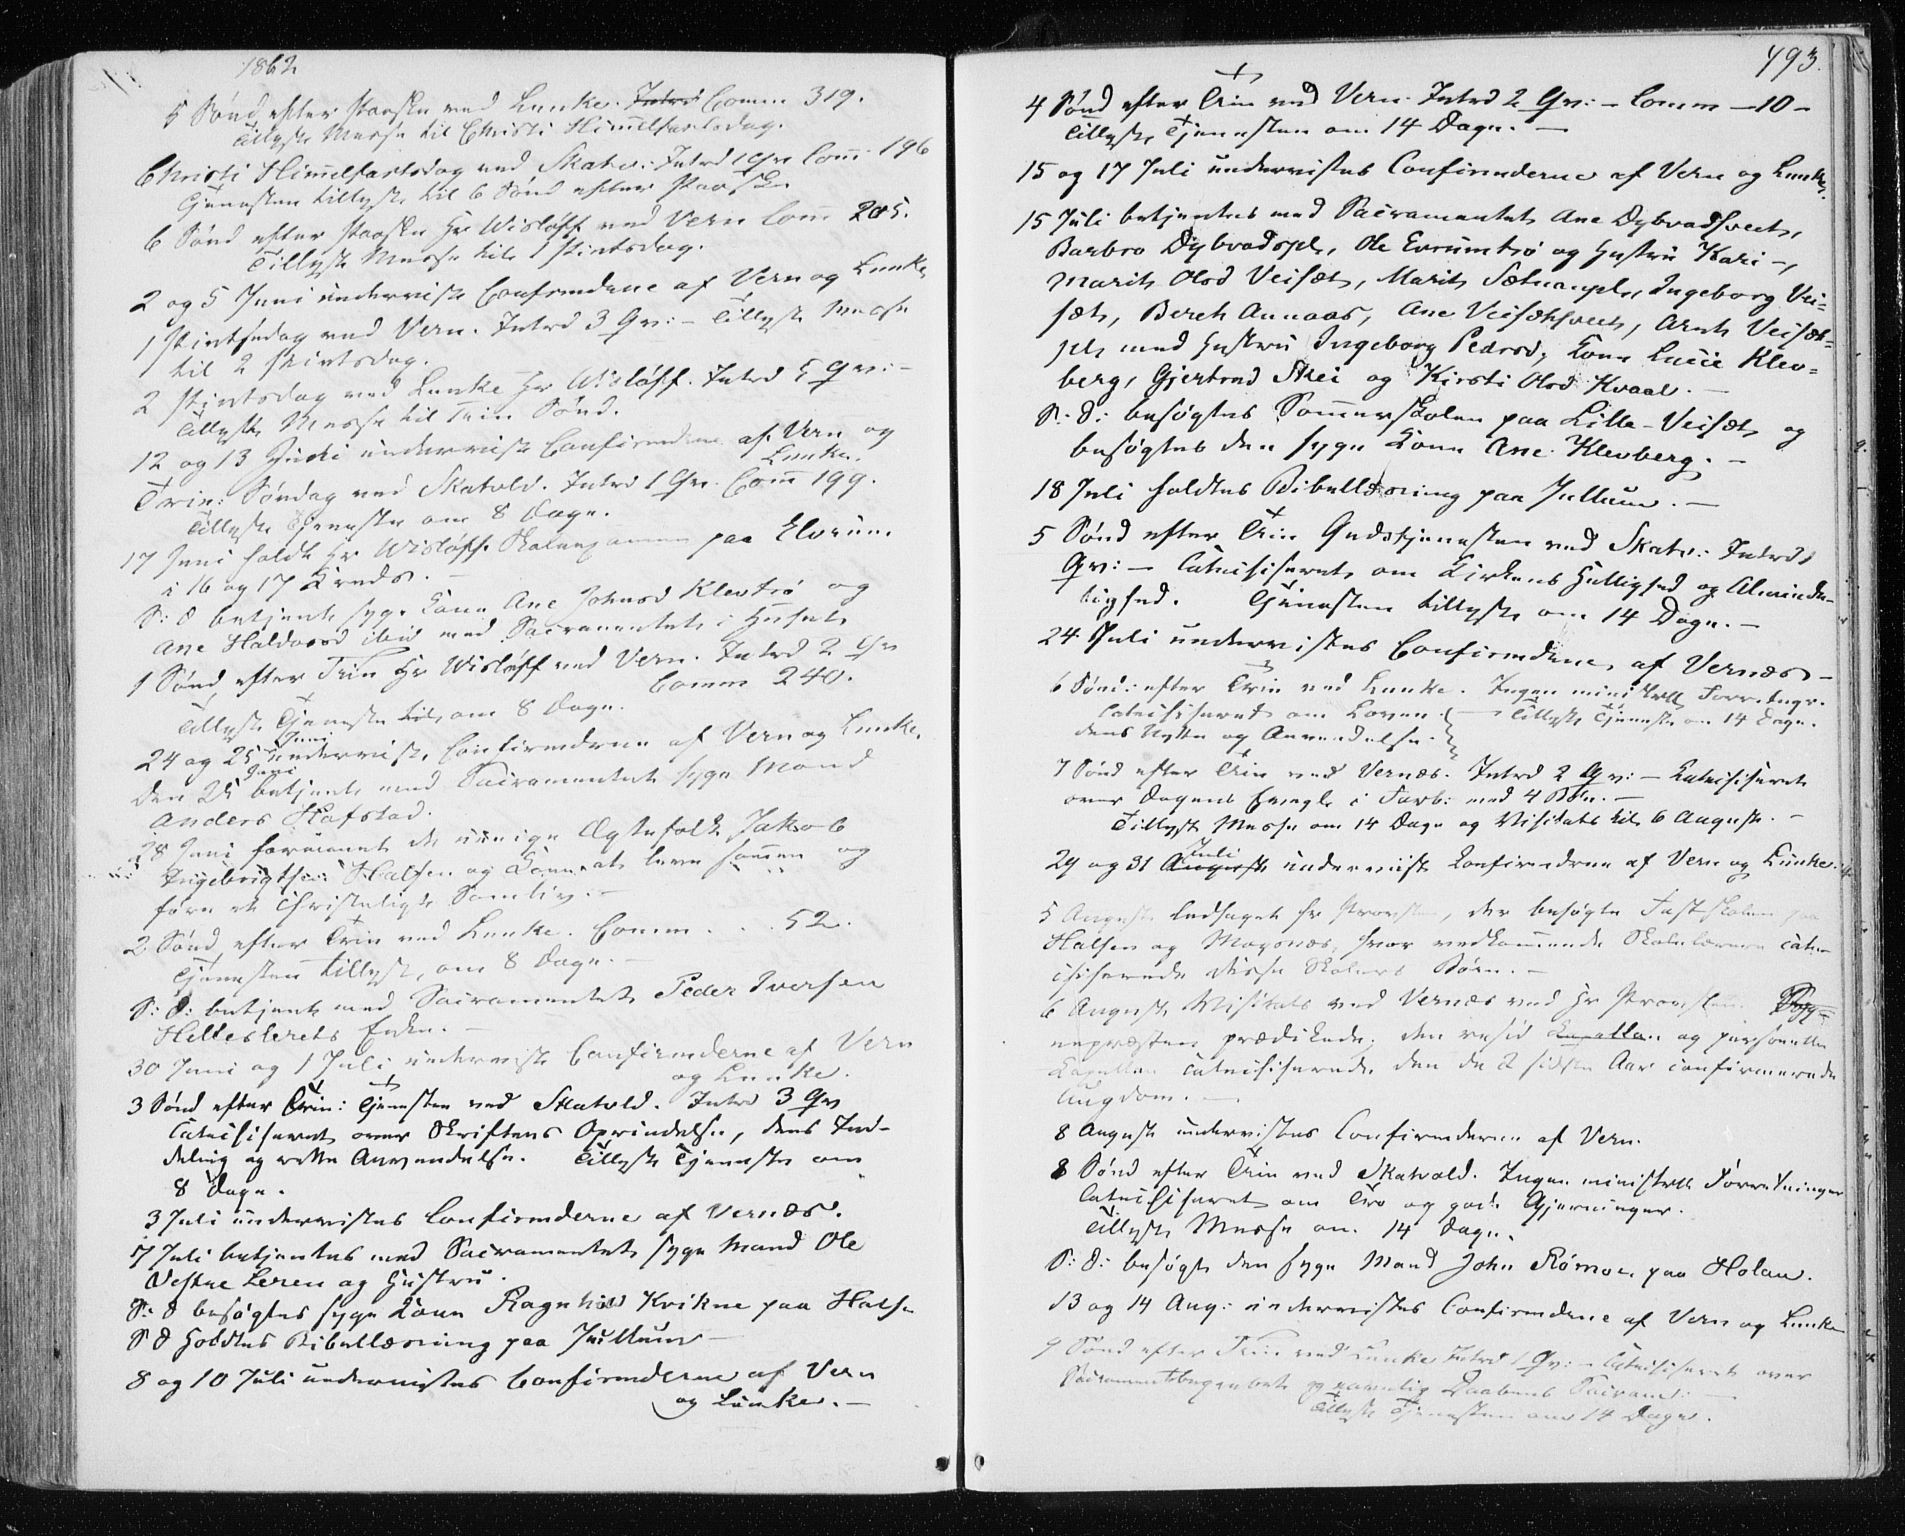 1862
5 Sønd efter Paaske ved Lunke. Introd Comm 319.
Tillyst Messe til Christi Himmelfartsdag.
Christi Himmelfartsdag ved Skatv: Introd 1 Qv Com: 196
Tjenesten tillyst til 6 Sønd efter Paaske
6 Sønd efter Paaske Hr Wisløff ved Vern Com 205.
Tillyst Messe til 1 Pintsdag.
2 og 5 Juni underviist Confirmdene af Vern og Lunke
1 Pintsedag ved Vern. Introd 3 Qv: – Tillyst Messe
til 2 Pintsdag.
2 Pintsdag ved Lunke Hr Wisløff. Introd 5 Qv: –
Tillyst Messe til Trin Sønd.
12 og 13 Juni underviist Confirmdene af Vern og
Lunke.
Trin: Søndag ved Skatvold. Introd 1 Qv. Comm 199.
Tillyst Tjeneste om 8 Dage.
17 Juni holdt Hr Wisløff Skoleexamen paa Elvrum.
i 16 og 17 Kreds. –
S: D betjent syge Kone Ane Johnsd Klevtrø og
Ane Haldorsd ibid med Sacramentet i Huset
1 Sønd efter Trin Hr Wisløff ved Vern. Introd 2 Qv
Comm 240.
Tillyst Tjeneste til om 8 Dage.
24 og 25 Juni underviist Confirmdene af Vern og Lunke.
Den 25 Juni betjent med Sacramentet syge Mand
Anders Hofstad.
28 Juni formanet de uenige Ægtefolk Jakob
Ingebrigtsen Halsen og Kone at leve sammen og
føre et christeligt Samliv. –
2 Sønd efter Trin ved Lunke. Comm. . . 52.
Tjenesten tillyst, om 8 Dage. –
S: D: betjent med Sacramentet Peder Iversen
Hellesterets Enke. –
30 Juni og 1 Juli underviist Confirmderne af Vern
og Lunke.
3 Sønd efter Trin: Tjenesten ved Skatvold. Introd 3 Qv
Catechiseret over Skriftens Oprindelse, dens Ind-
deling og rette Anvendelse. Tillyst Tjeneste om
8 Dage.
3 Juli undervistes Confirmderne af Vernæs.
7 Juli betjentes med Sacramentet syge Mand Ole
Vestre Leren og Hustru.
S: D besøgtes syge Kone Ragnhild Kvikne paa Halse
S D holdtes Bibellæsning paa Jullum –
8 og 10 Juli undervistes Confirmderne af Vern
og Lunke. –
493.
4 Sønd efter Trin ved Vern. Introd 2 Qv: – Comm – 10 –
Tillyst Tjenesten om 14 Dage. –
15 og 17 Juli undervistes Confirmderne af Vern og Lunke.
15 Juli betjentes med Sacramentet Ane Dybvadsveet,
Barbro Dybvadspl, Ole Evrumtrø og Hustru Kari –,
Marit Olsd Veisæt, Marit Sætnanpl, Ingeborg Vei-
sæt, Beret Aunaas, Ane Veisætsveet, Arnt Veisæt-
pl med Hustru Ingeborg Pedersd, Kone Lucie Klev-
berg, Gjertrud Skei og Kirsti Olsd Kvaal. –
S. D: besøgtes Sommerskolen paa Lille-Veisæt og
besøgtes den syge Kone Ane Klevberg. –
18 Juli holdtes Bibellæsning paa Jullum. –
5 Sønd efter Trin Gudstjenesten ved Skatv: Introd 1
Qv: – Catechiseret om Kirkens Hellighed og Alminde-
lighed. Tjenesten tillyst om 14 Dage. –
24 Juli undervistes Confirmdene, af Vernæs –
6 Sønd: efter Trin ved Lunke. Ingen ministrll Forretngr.
Catechiseret om Loven. – Tillyst Tjeneste om 14 Dage.
dens Nytte og Anvendelse.
7 Sønd efter Trin ved Vernæs. Introd 2 Qv: – Katechiseret
over Dagens Evngl i Forb: med 4 Bøn. –
Tillyst Messe om 14 Dage og Visitats til 6 August. –
29 og 31 Juli August underviist Confirmdrne af Vern og Lunke.
5 August ledsaget Hr Provsten, der besøgte Fastskolen paa
Halsen og Moxnæs, hvor vedkommende Skolelærere cate-
chiserede disse Skolers Børn. –
6 August Visitats ved Vernæs ved Hr Provsten. Sog-
nepræsten prædikede, den resid Kapellan og personelle
Kapellan Catechiserede den de 2 sidste Aar confirmerede
Ungdom. –
8 August undervistes Confirmderne af Vern.
8 Sønd efter Trin ved Skatvold. Ingen ministrll Forretninger
Catechiseret om Tro og gode Gjerninger.
Tillyst Messe om 14 Dage.
S: D: besøgt den syge Mand John Rømoe paa Holan.
13 og 14 Aug: undervistes Confirmdene af Vern og Lunke
9 Sønd efter Trin ved Lunke Introd 1 Qv: – Catechiseret over
Sacramentsbegrebet og navnlig Daabens Sacramt: –
Tillyst Tjenesten om 14 Dage.